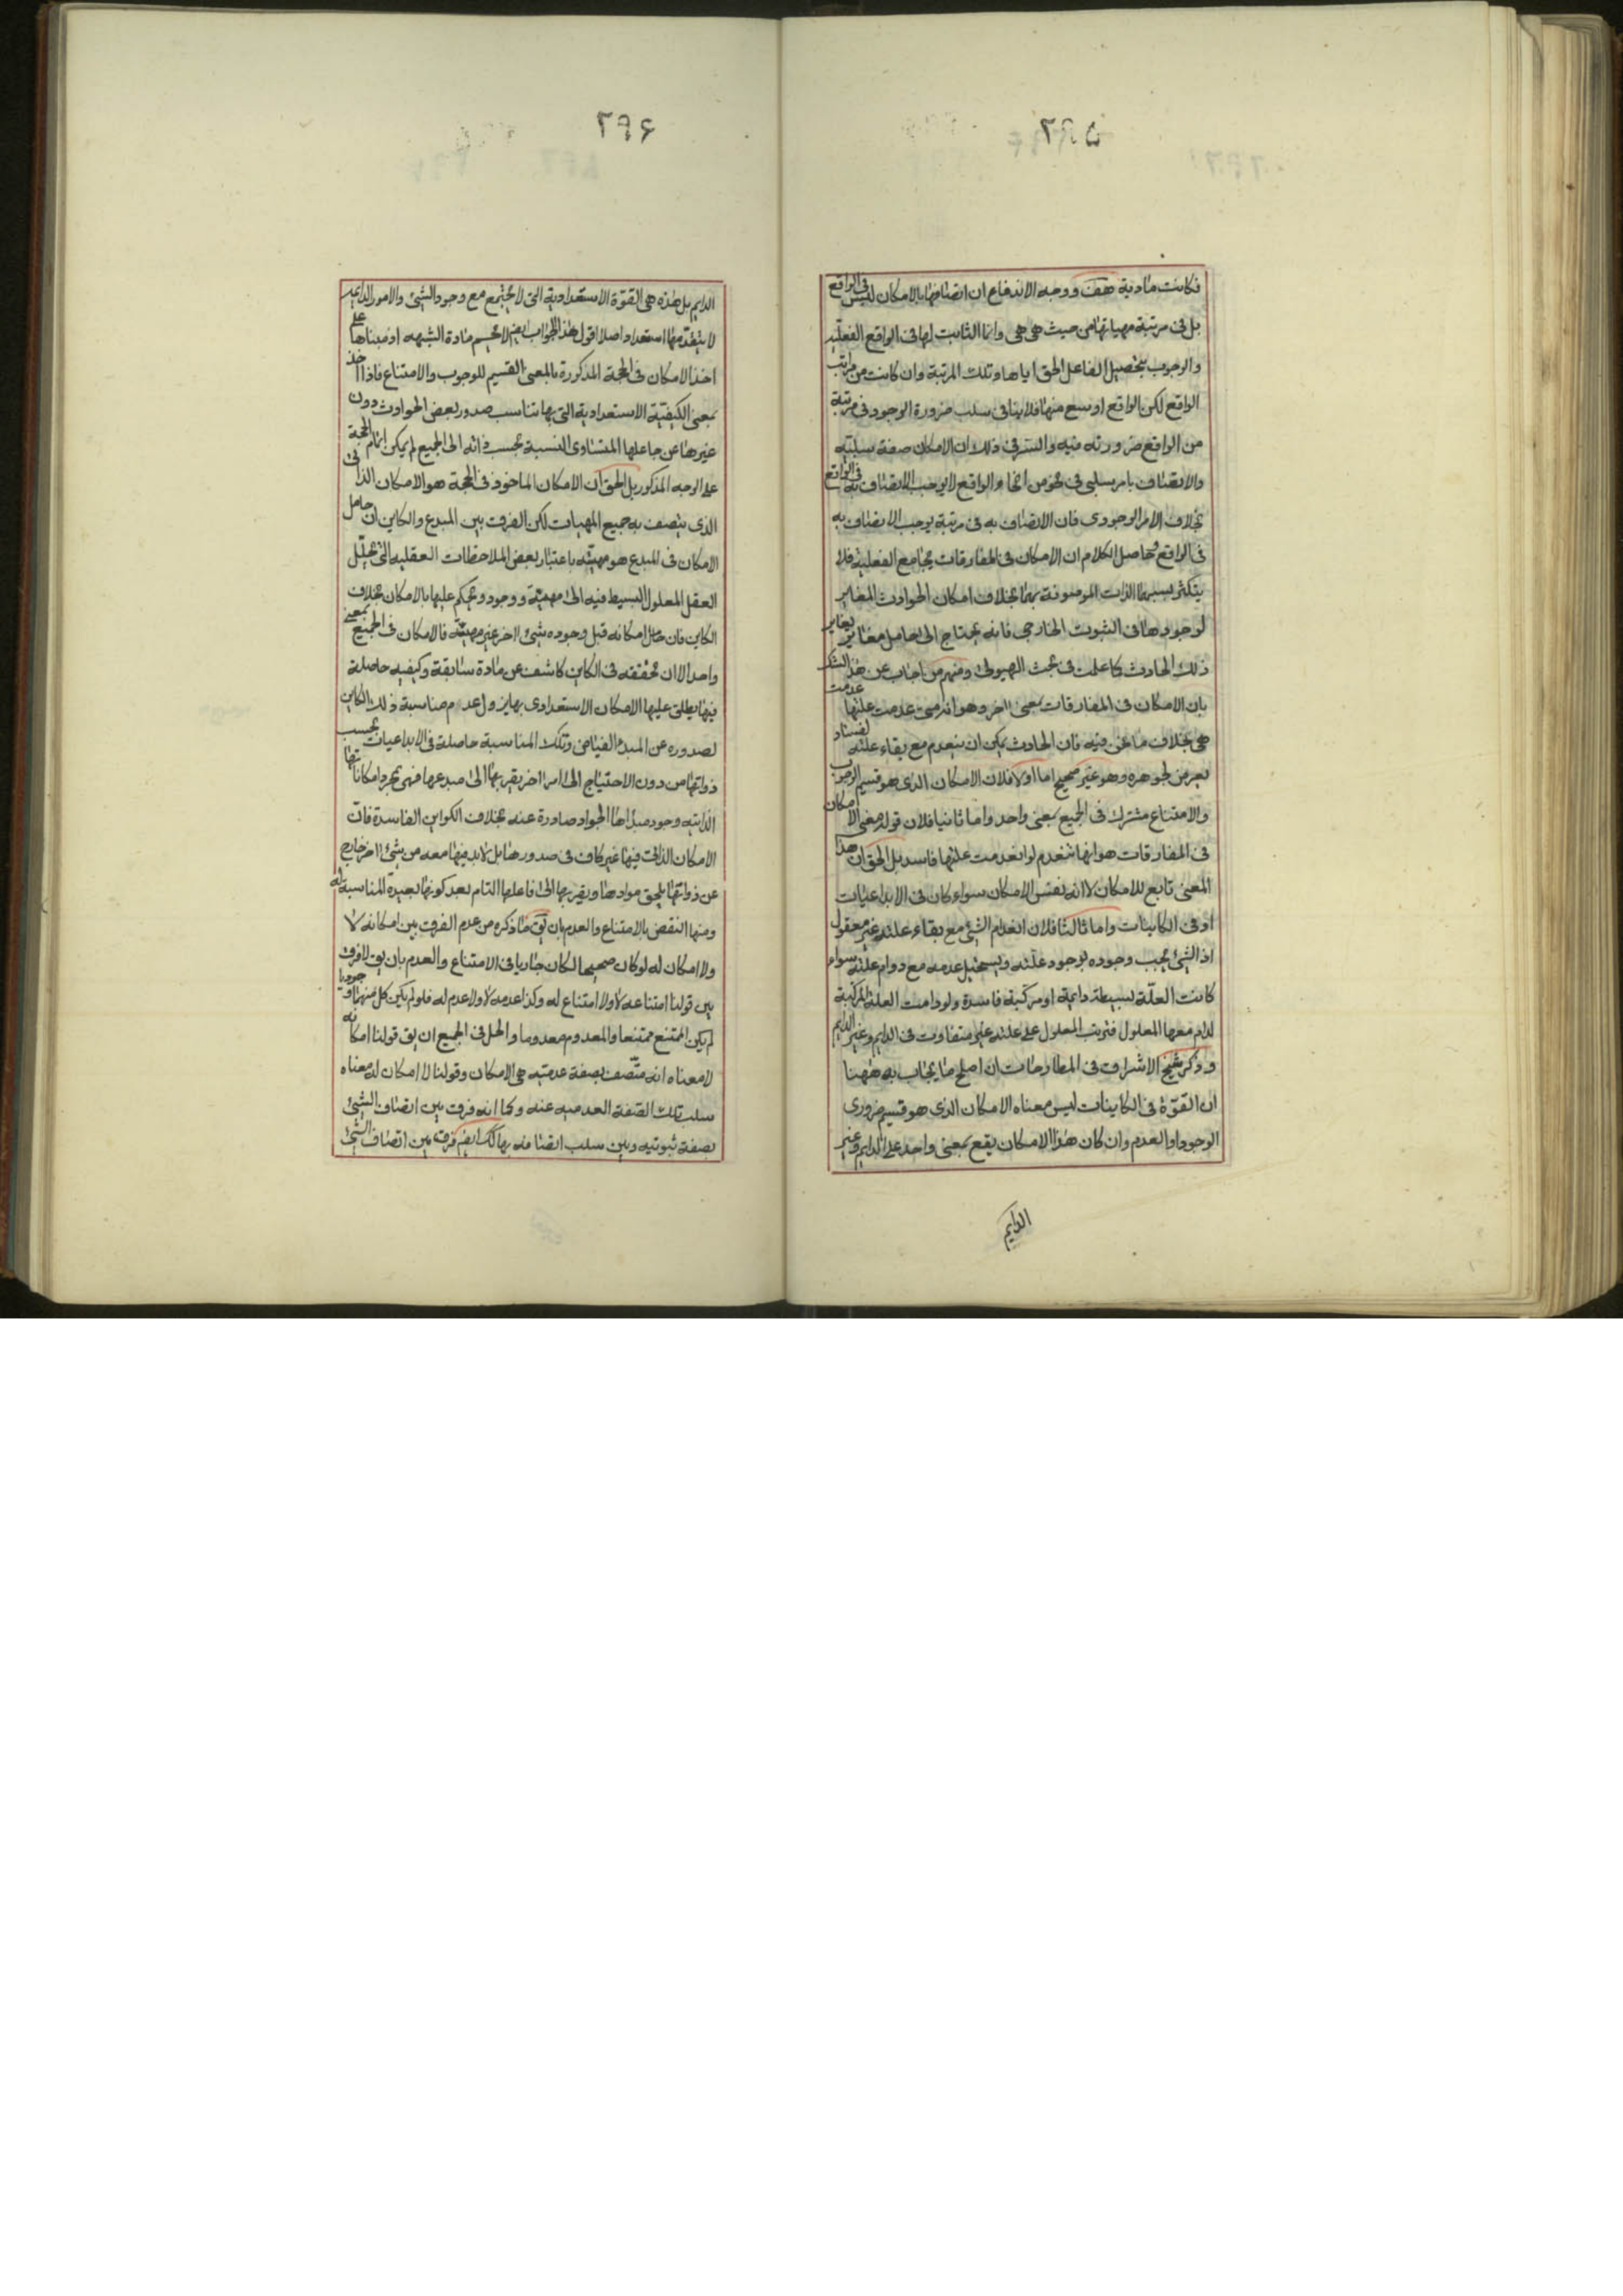 ٢٩٥
فكانت مادية هف ووجه الاندفاع ان اتصافها بالامكان ليس فى الواقع
بل فى مرتبة مهياتها من حيث هى هى وانما الثابت لها فى الواقع الفعلية
والوجوب بتحصيل الفاعل الحق اياها وتلك المرتبة وان كانت من مراتب
الواقع لكن الواقع اوسع منها فلا ينافى سلب ضرورة الوجود فى مرتبة
من الواقع ضرورته فيه والسر فى ذلك ان الامكان صفة سلبية
والاتصاف بامر سلبى فى نحو من انحاء الواقع لا يوجب الاتصاف به فى الواقع
بخلاف الامر الوجودى فان الاتصاف به فى مرتبة يوجب الاتصاف به
فى الواقع وحاصل الكلام ان الامكان فى المفارقات يجامع الفعلية فلا
يتكثر بسببهما الذات الموصوفة بهما بخلاف امكان الحوادث المغاير
لوجودها فى الثبوت الخارجى فانه يحتاج الى حامل مغاير يغاير
ذلك الحادث كما علمت فى بحث الهيولى ومنهم من اجاب عن هذا الشك
بان الامكان فى المفارقات بمعنى اخر وهو انه متى عدمت علتها عدمت
هى بخلاف ما نحن فيه فان الحادث يمكن ان ينعدم مع بقاء علته لفساد
يعرض لجوهره وهو غير صحيح اما اولا فلان الامكان الذى هو قسيم الوجوب
والامتناع مشترك فى الجميع بمعنى واحد واما ثانيا فلان قوله معنى الامكان
فى المفارقات هو انها تنعدم لو انعدمت علتها فاسد بل الحق ان هذا
المعنى تابع للامكان لا انه نفس الامكان سواء كان فى الابداعيات
او فى الكاينات واما ثالثا فلان انعدام الشئ مع بقاء علته غير معقول
اذ الشئ يجب وجوده بوجود علته ويستحيل عدمه مع دوام علته سواء
كانت العلّة بسيطة دايمة او مركبة فاسدة ولو دامت العلة المركبة
لدام معها المعلول فترتب المعلول على علته غير متفاوت فى الدايم وغير الدايم
وذكر شيخ الاشراق فى المطارحات ان اصلح ما يجاب به ههنا
ان القوّة فى الكاينات ليس معناه الامكان الذى هو قسيم ضرورى
الوجود او العدم وان كان هذا الامكان يقع بمعنى واحد على الدايم وغير
الدايم
٢٩۶
الدايم بل هذه هى القوّة الاستعدادية التى لا تجتمع مع وجود الشئ والامور الدايمة
لا يتقدمها استعداد اصلا اقول هذا الجواب ايضا لا يحسم مادة الشبهه اذ مبناها على
اخذ الامكان فى الحجة المذكورة بالمعنى القسيم للوجوب والامتناع فاذا اخذ
بمعنى الكيفيّة الاستعدادية التى بها تناسب صدور بعض الحوادث دون
غيرها عن جاعلها المتساوى النسبة بحسب ذاته الى الجميع لم يمكن اتمام الحجة
على الوجه المذكور بل الحق ان الامكان الماخوذ فى الحجة هو الامكان الذاتى
الذى يتصف به جميع المهيات لكن الفرق بين المبدع والكاين ان حامل
الامكان فى المبدع هو مهيته باعتبار بعض الملاحظات العقليه التى يحلل
العقل المعلول البسيط فيه الى مهية ووجود ويحكم عليها بالامكان بخلاف
الكاين فان حامل امكانه قبل وجوده شئ اخر غير مهيته فالامكان فى الجميع بمعنى
واحد الا ان تحققه فى الكاين كاشف عن مادة سابقة وكيفيه حاصلة
فيها يطلق عليها الامكان الاستعدادى بها يزول عدم مناسبة ذلك الكاين
لصدوره عن المبدء الفياض وتلك المناسبة حاصلة فى الابداعيات بحسب
ذواتها من دون الاحتياج الى امر اخر يقربها الى مبدعها فهى بمجرد امكاناتها
الذاتيه وجود مبداها الجواد صادرة عنه بخلاف الكواين الفاسدة فان
الامكان الذاتى فيها غير كاف فى صدورها بل لا بد فيها معه من شئ اخر خارج
عن ذواتها يلحق موادها ويقربها الى فاعلها التام بعد كونها بعيدة المناسبة له
ومنها النقض بالامتناع والعدم بان يق ما ذكره من عدم الفرق بين امكانه لا
ولا امكان له لو كان صحيحا لكان جاريا فى الامتناع والعدم بان يق لا فرق
بين قولنا امتناعه لا ولا امتناع له وكذا عدمه لا ولا عدم له فلو لم يكن كل منهما وجوديا
لم يكن الممتنع ممتنعا والمعدوم معدوما والحل فى الجميع ان يق قولنا امكانه
لا معناه انه متّصف بصفة عدميّه هى الامكان وقولنا لا امكان له معناه
سلب تلك الصّفة العدميه عنه وكما انه فرق بين اتصاف الشئ
بصفة ثبوتيه وبين سلب اتصافه بها كك ايضا فرق بين اتصاف الشئ